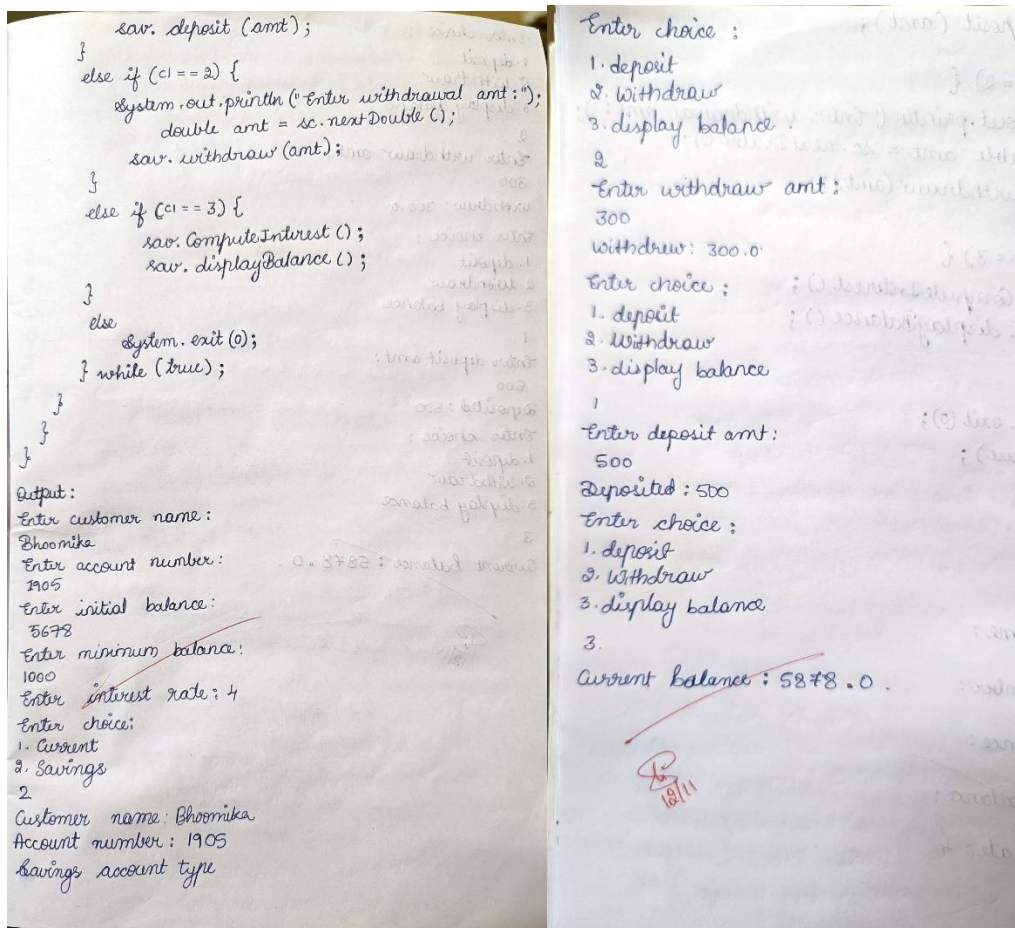 sav. deposit (amt);
}
else if (c1 == 2) {
System.out.println ("Enter withdrawal amt:");
double amt = sc.nextDouble ();
sav. withdraw (amt);
}
else if (c1 == 3) {
sav. ComputeInterest ();
sav. displayBalance ();
}
else
System. exit (0);
} while (true);
}
}
}
Output:
Enter customer name:
Bhoomika
Enter account number:
1905
Enter initial balance:
5678
Enter minimum balance:
1000
Enter interest rate: 4
Enter choice:
1. Current
2. Savings
2
Customer name: Bhoomika
Account number: 1905
Savings account type
Enter choice:
1. deposit
2. Withdraw
3. display balance.
2
Enter withdraw amt:
300
withdrew: 300.0
Enter choice:
1. deposit
2. Withdraw
3. display balance
1
Enter deposit amt:
500
Deposited: 500
Enter choice:
1. deposit
2. Withdraw
3. display balance
3.
Current balance: 5878.0.
12/11